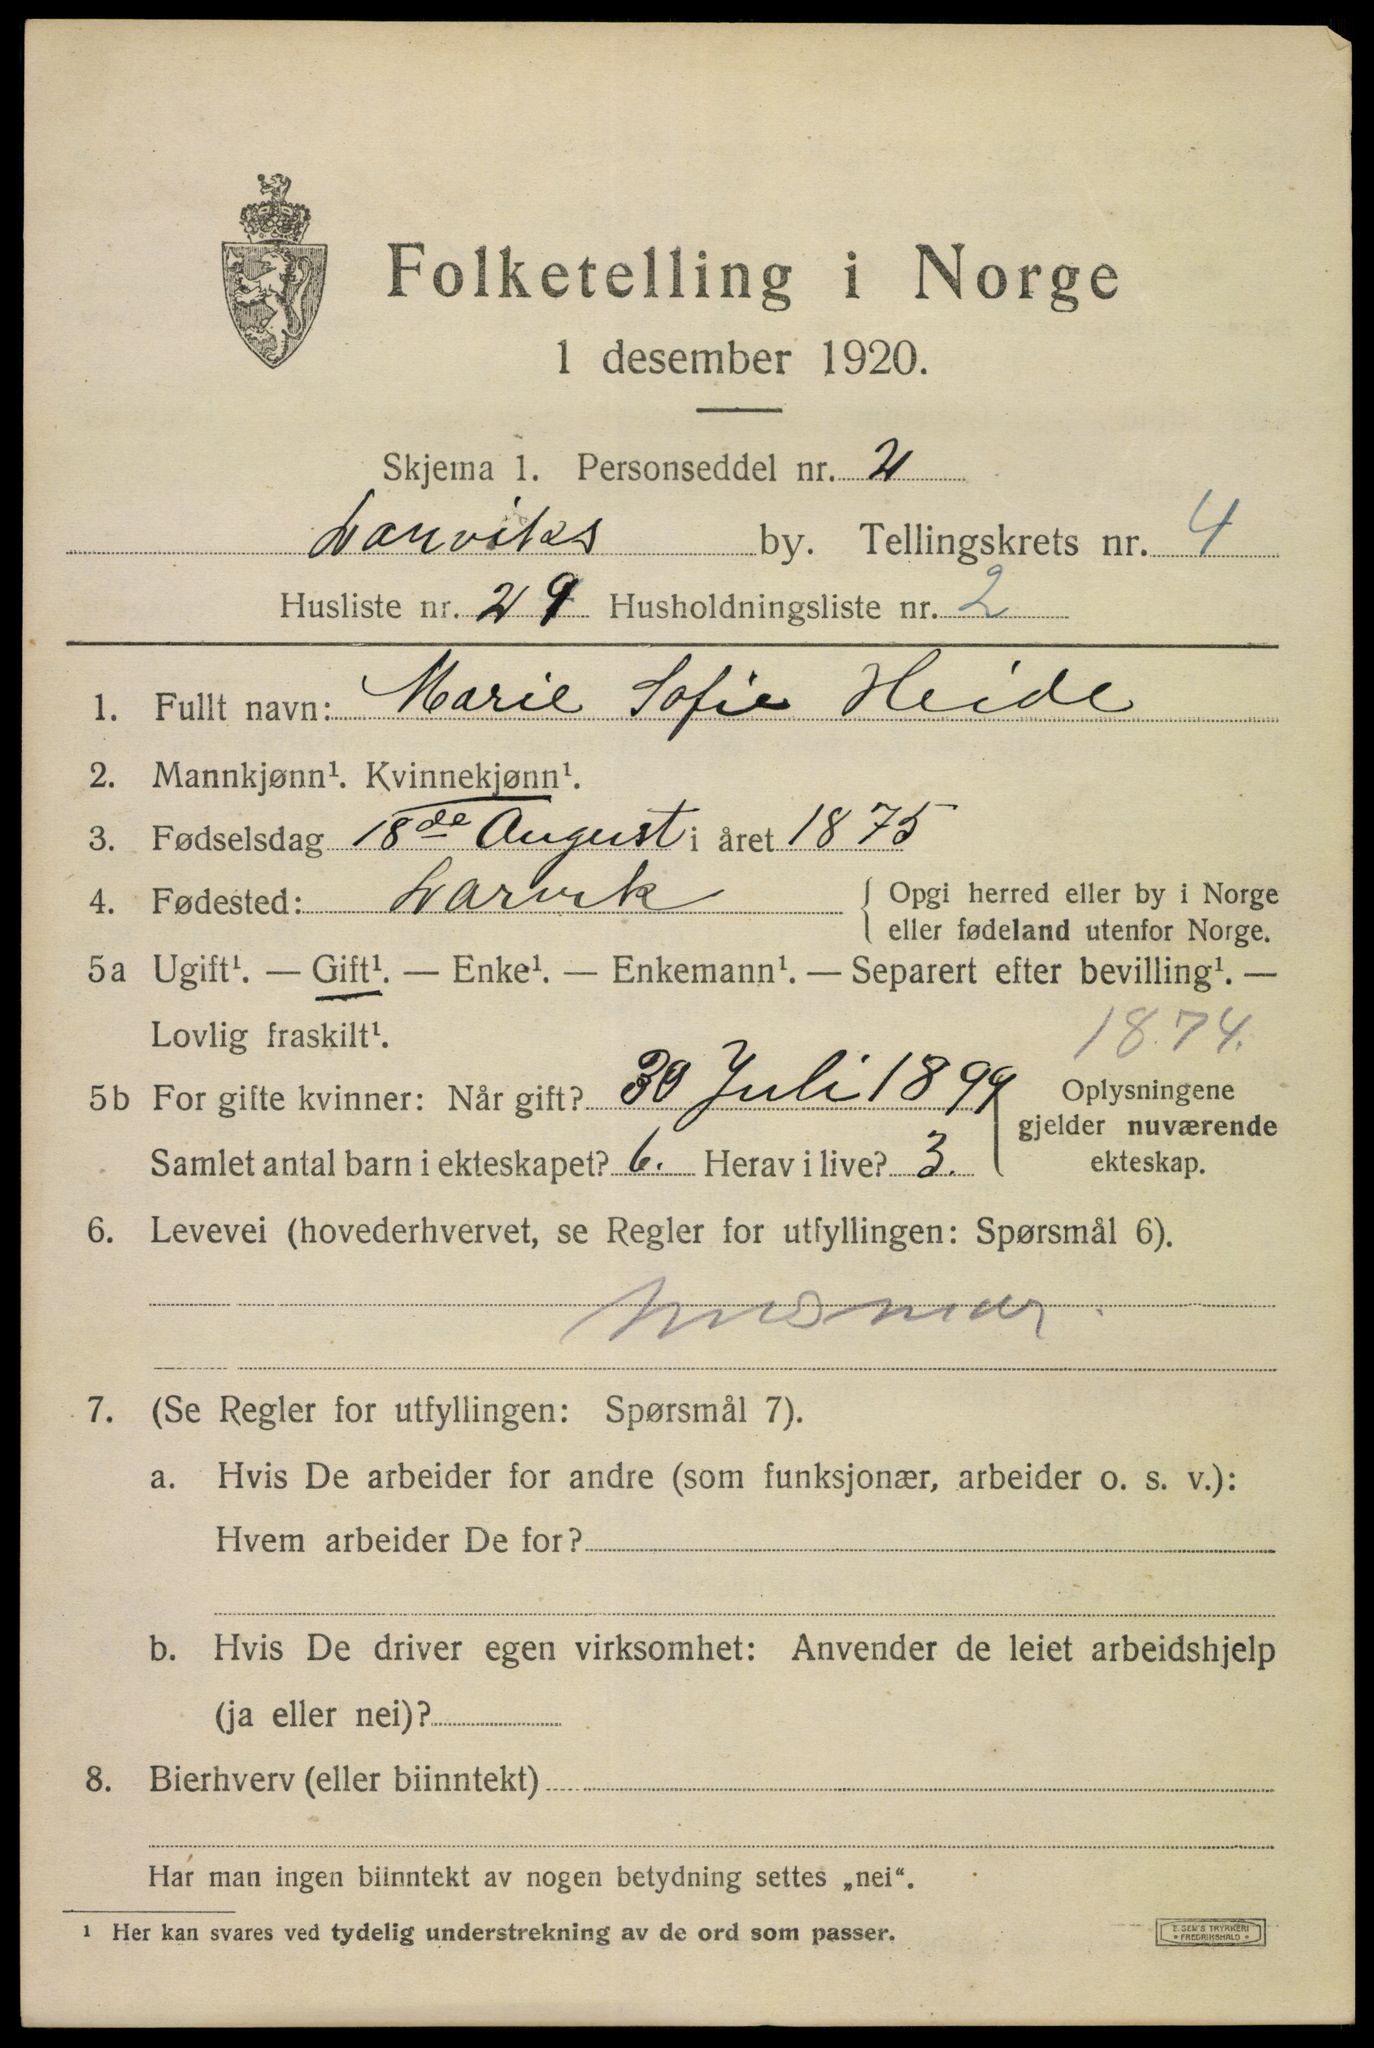 Folketelling i Norge
1 desember 1920.
Skjema 1. Personseddel nr. 2
Larviks by. Tellingskrets nr. 4
Husliste nr. 29 Husholdningsliste nr. 2
1. Fullt navn: Marie Sofie Heide
2. Mannkjønn¹. Kvinnekjønn¹.
3. Fødselsdag 18de August i året 1875
4. Fødested: Larvik { Opgi herred eller by i Norge
eller fødeland utenfor Norge.
5a Ugift¹. — Gift¹. — Enke¹. — Enkemann¹. — Separert efter bevilling¹. —
Lovlig fraskilt¹.
1874.
5b For gifte kvinner: Når gift? 30 Juli 1899
Samlet antal barn i ekteskapet? 6. Herav i live? 3.
Oplysningene
gjelder nuværende
ekteskap.
6. Levevei (hovederhvervet, se Regler for utfyllingen: Spørsmål 6).
7. (Se Regler for utfyllingen: Spørsmål 7).
a. Hvis De arbeider for andre (som funksjonær, arbeider o. s. v.):
Hvem arbeider De for?
b. Hvis De driver egen virksomhet: Anvender de leiet arbeidshjelp
(ja eller nei)?
8. Bierhverv (eller biinntekt)
Har man ingen biinntekt av nogen betydning settes „nei“.
¹ Her kan svares ved tydelig understrekning av de ord som passer.
E. SEM'S TRYKKERI
* FREDRIKSHALD *